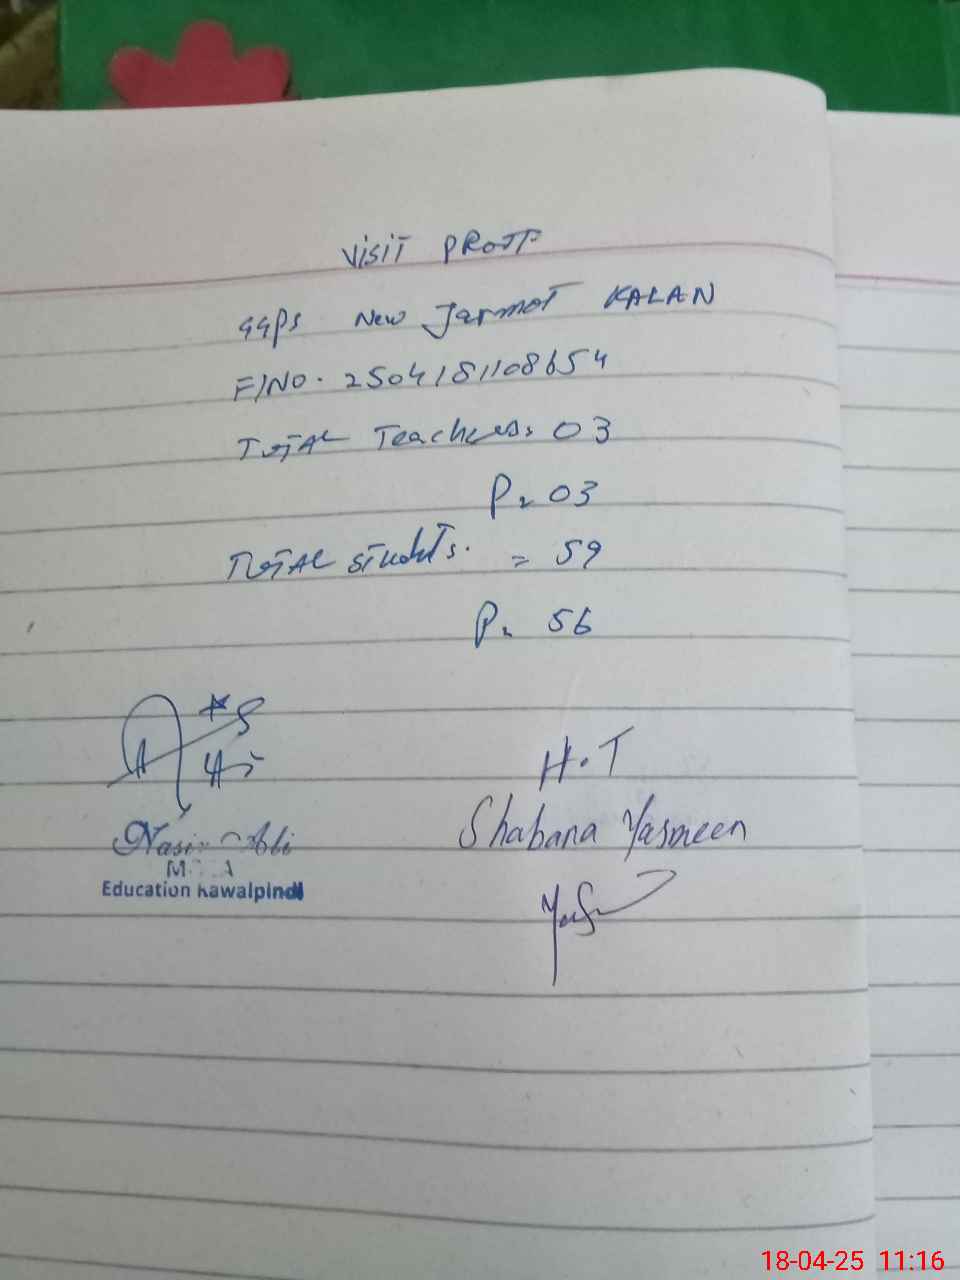 Visit Proff
GGPS New Jarmot KALAN
F/NO. 2504181108654
Total Teachers. 03
P= 03
Total Students. = 59
P= 56
H.T
Shabana Yasmeen
Nasir Ali
Education Rawalpindi
18-04-25 11:16